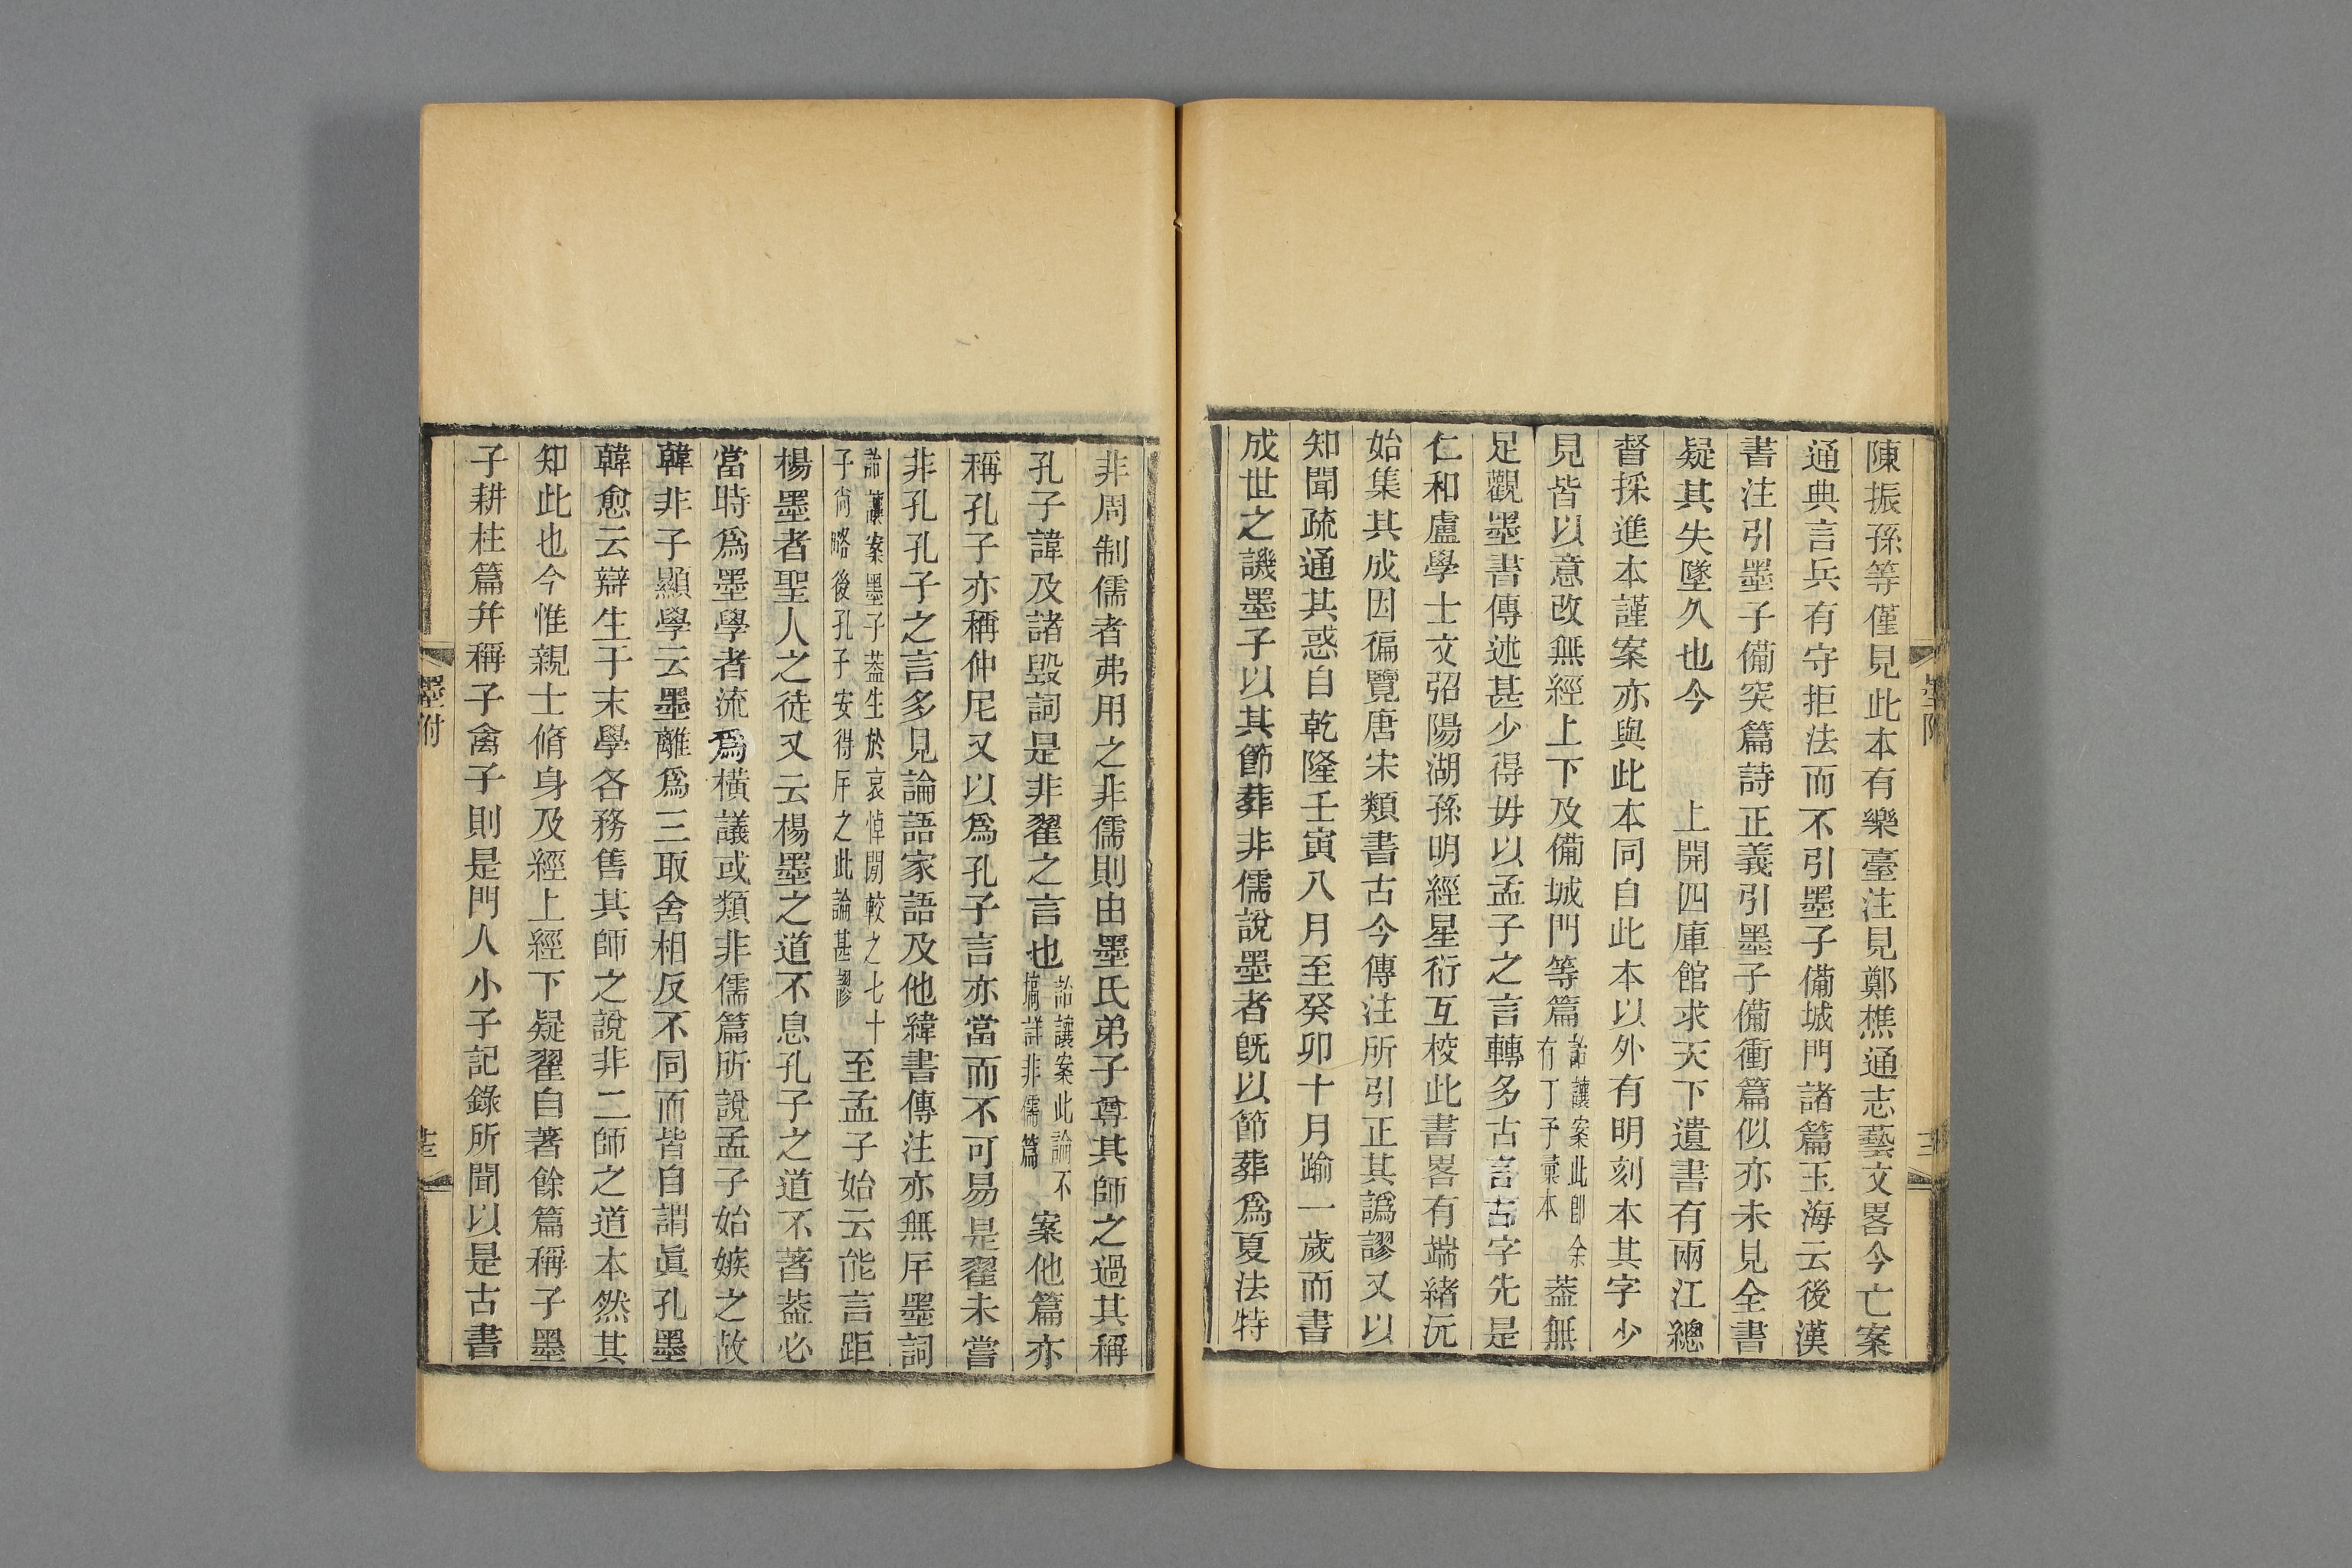 陳振孫等僅見此本有樂臺注見鄭樵通志藝文畧今亡案
通典言兵有守拒法而不引墨子備城門諸篇玉海云後漢
書注引墨子備突篇詩正義引墨子備衝篇似亦未見全書
疑其失墜久也今　　上開四庫館求天下遺書有兩江總
督採進本謹案亦與此本同自此本以外有明刻本其字少
見皆以意改無經上下及備城門等篇詒讓案此卽余有丁子彙本葢無
足觀墨書傳述甚少得毋以孟子之言轉多古言古字先是
仁和盧學士文弨陽湖孫明經星衍互校此書畧有端緒沅
始集其成因徧覽唐宋類書古今傳注所引正其譌謬又以
知聞疏通其惑自乾隆壬寅八月至癸卯十月踰一歲而書
成世之譏墨子以其節葬非儒說墨者旣以節葬爲夏法特
墨附
非周制儒者弗用之非儒則由墨氏弟子尊其師之過其稱
孔子諱及諸毀詞是非翟之言也詒讓案此論不搞詳非儒篇案他篇亦
稱孔子亦稱仲尼又以爲孔子言亦當而不可易是翟未嘗
非孔孔子之言多見論語家語及他緯書傳注亦無斥墨詞
詒讓案墨子葢生於哀悼閒較之七十子尙略後孔子安得斥之此論甚謬至孟子始云能言距
楊墨者聖人之徒又云楊墨之道不息孔子之道不著葢必
當時爲墨學者流爲橫議或類非儒篇所說孟子始嫉之故
韓非子顯學云墨離爲三取舍相反不同而皆自謂眞孔墨
韓愈云辯生于末學各務售其師之說非二師之道本然其
知此也今惟親士脩身及經上經下疑翟自著餘篇稱子墨
子耕柱篇幷稱子禽子則是門人小子記錄所聞以是古書
墨附